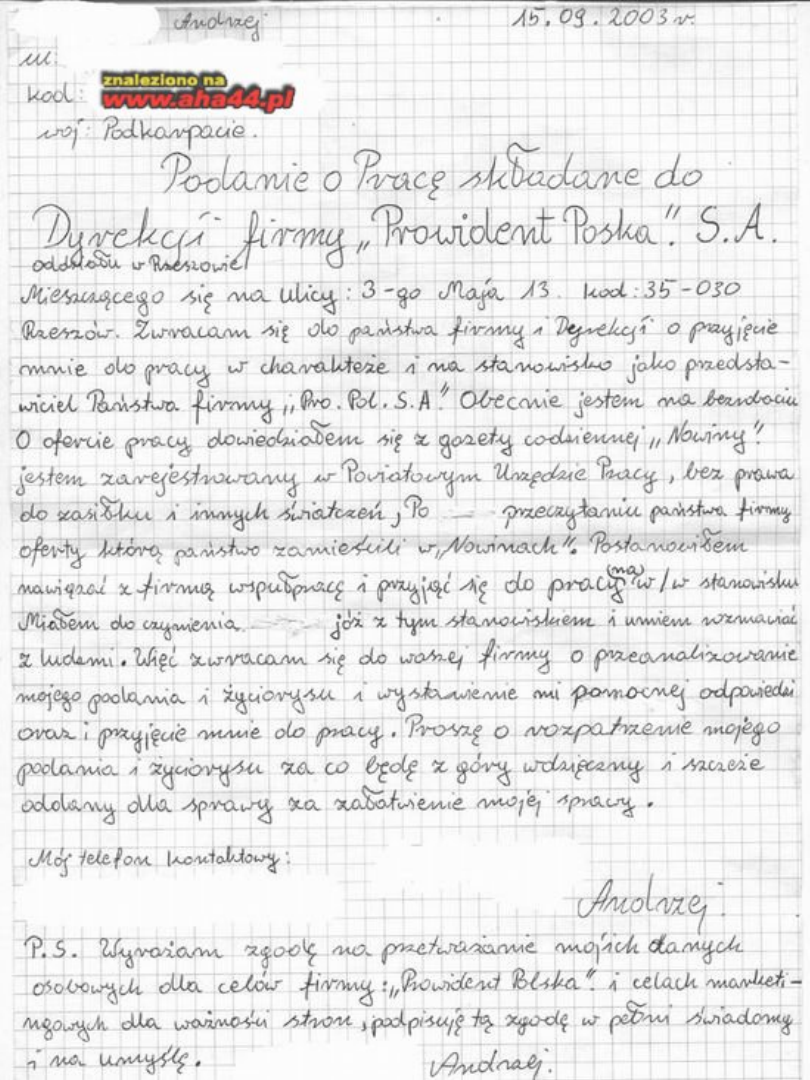 Andrzej 15.09.2003 r.
ul:
kod: znaleziono na
www.aha44.pl
woj: Podkarpacie.
Podanie o Pracę składane do
Dyrekcji firmy „Prowident Poska". S.A.
oddziału w Rzeszowie
Mieszczącego się na ulicy: 3-go Maja 13. kod: 35-030
Rzeszów. Zwracam się do państwa firmy i Dyrekcji o przyjęcie
mnie do pracy w charakteże i na stanowisko jako przedsta-
wiciel Państwa firmy „Pro. Pol. S.A." Obecnie jestem na bezrobociu
O ofercie pracy dowiedziałem się z gazety codziennej „Nowiny".
jestem zarejestrowany w Powiatowym Urzędzie Pracy, bez prawa
do zasiłku i innych światczeń, Po przeczytaniu państwa firmy
oferty którą państwo zamieścili w „Nowinach". Postanowiłem
nawiązać z firmą wspułpracę i przyjąć się do pracy (na) w/w stanowisku
Miałem do czynienia jóż z tym stanowiskiem i umiem rozmawiać
z ludzmi. Więć zwracam się do waszej firmy o przeanalizowanie
mojego podania i życiorysu i wystawienie mi pomocnej odpowiedzi
oraz i przyjęcie mnie do pracy. Proszę o rozpatrzenie mojego
podania i życiorysu za co będę z góry wdzięczny i szczeże
oddany dla sprawy za załatwienie mojej sprawy.
Mój telefon kontaktowy:
Andrzej.
P.S. Wyrażam zgodę na przetważanie mojich danych
osobowych dla celów firmy: „Prowident Polska". i celach marketi-
ngowych dla ważności stron, podpisuję tą zgodę w pełni świadomy
i na umyślę. Andrzej.